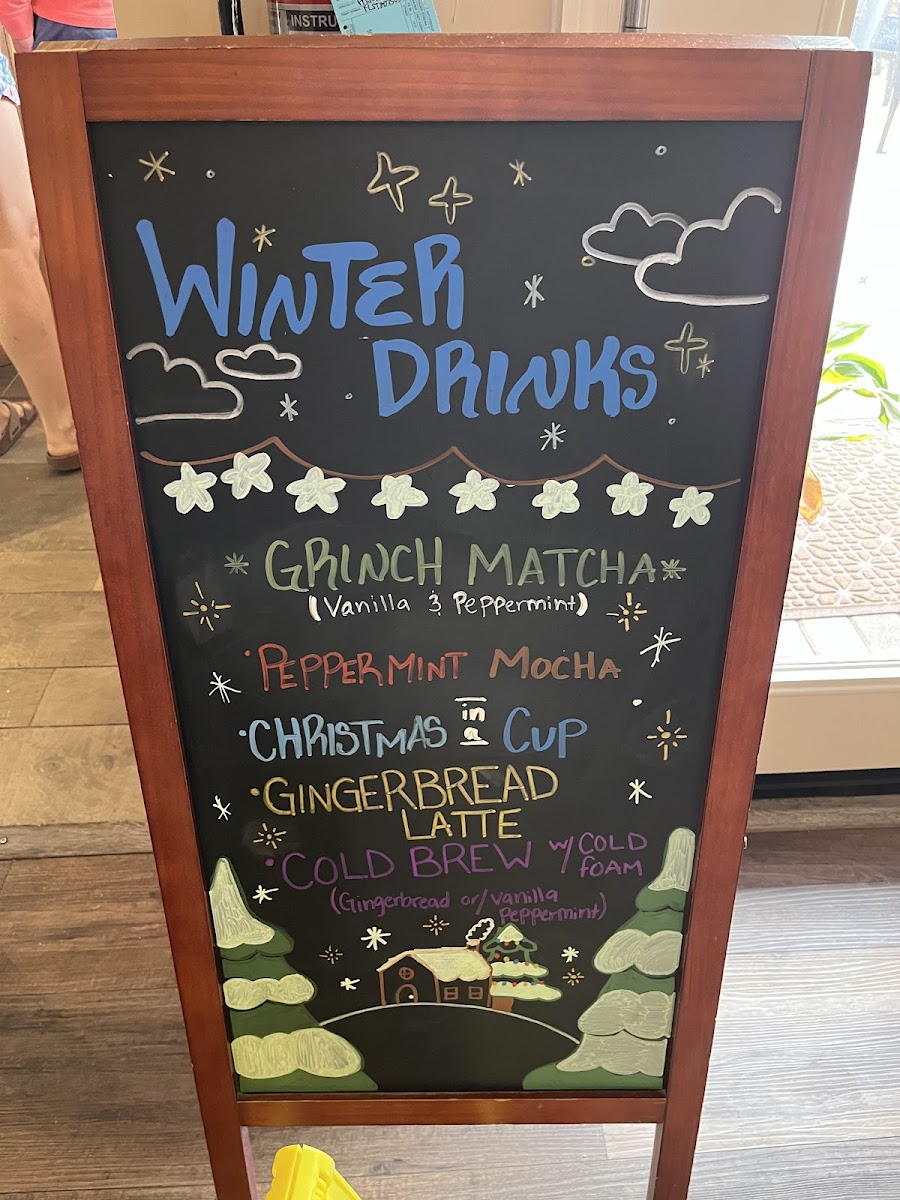 INSTRU
WINTER
DRINKS
GRINCH MATCHA
(Vanilla & Peppermint)
·PEPPERMINT MOCHA
·CHRISTMAS in a CUP
·GINGERBREAD
LATTE
·COLD BREW w/ COLD FOAM
(Gingerbread or/ vanilla
Peppermint)